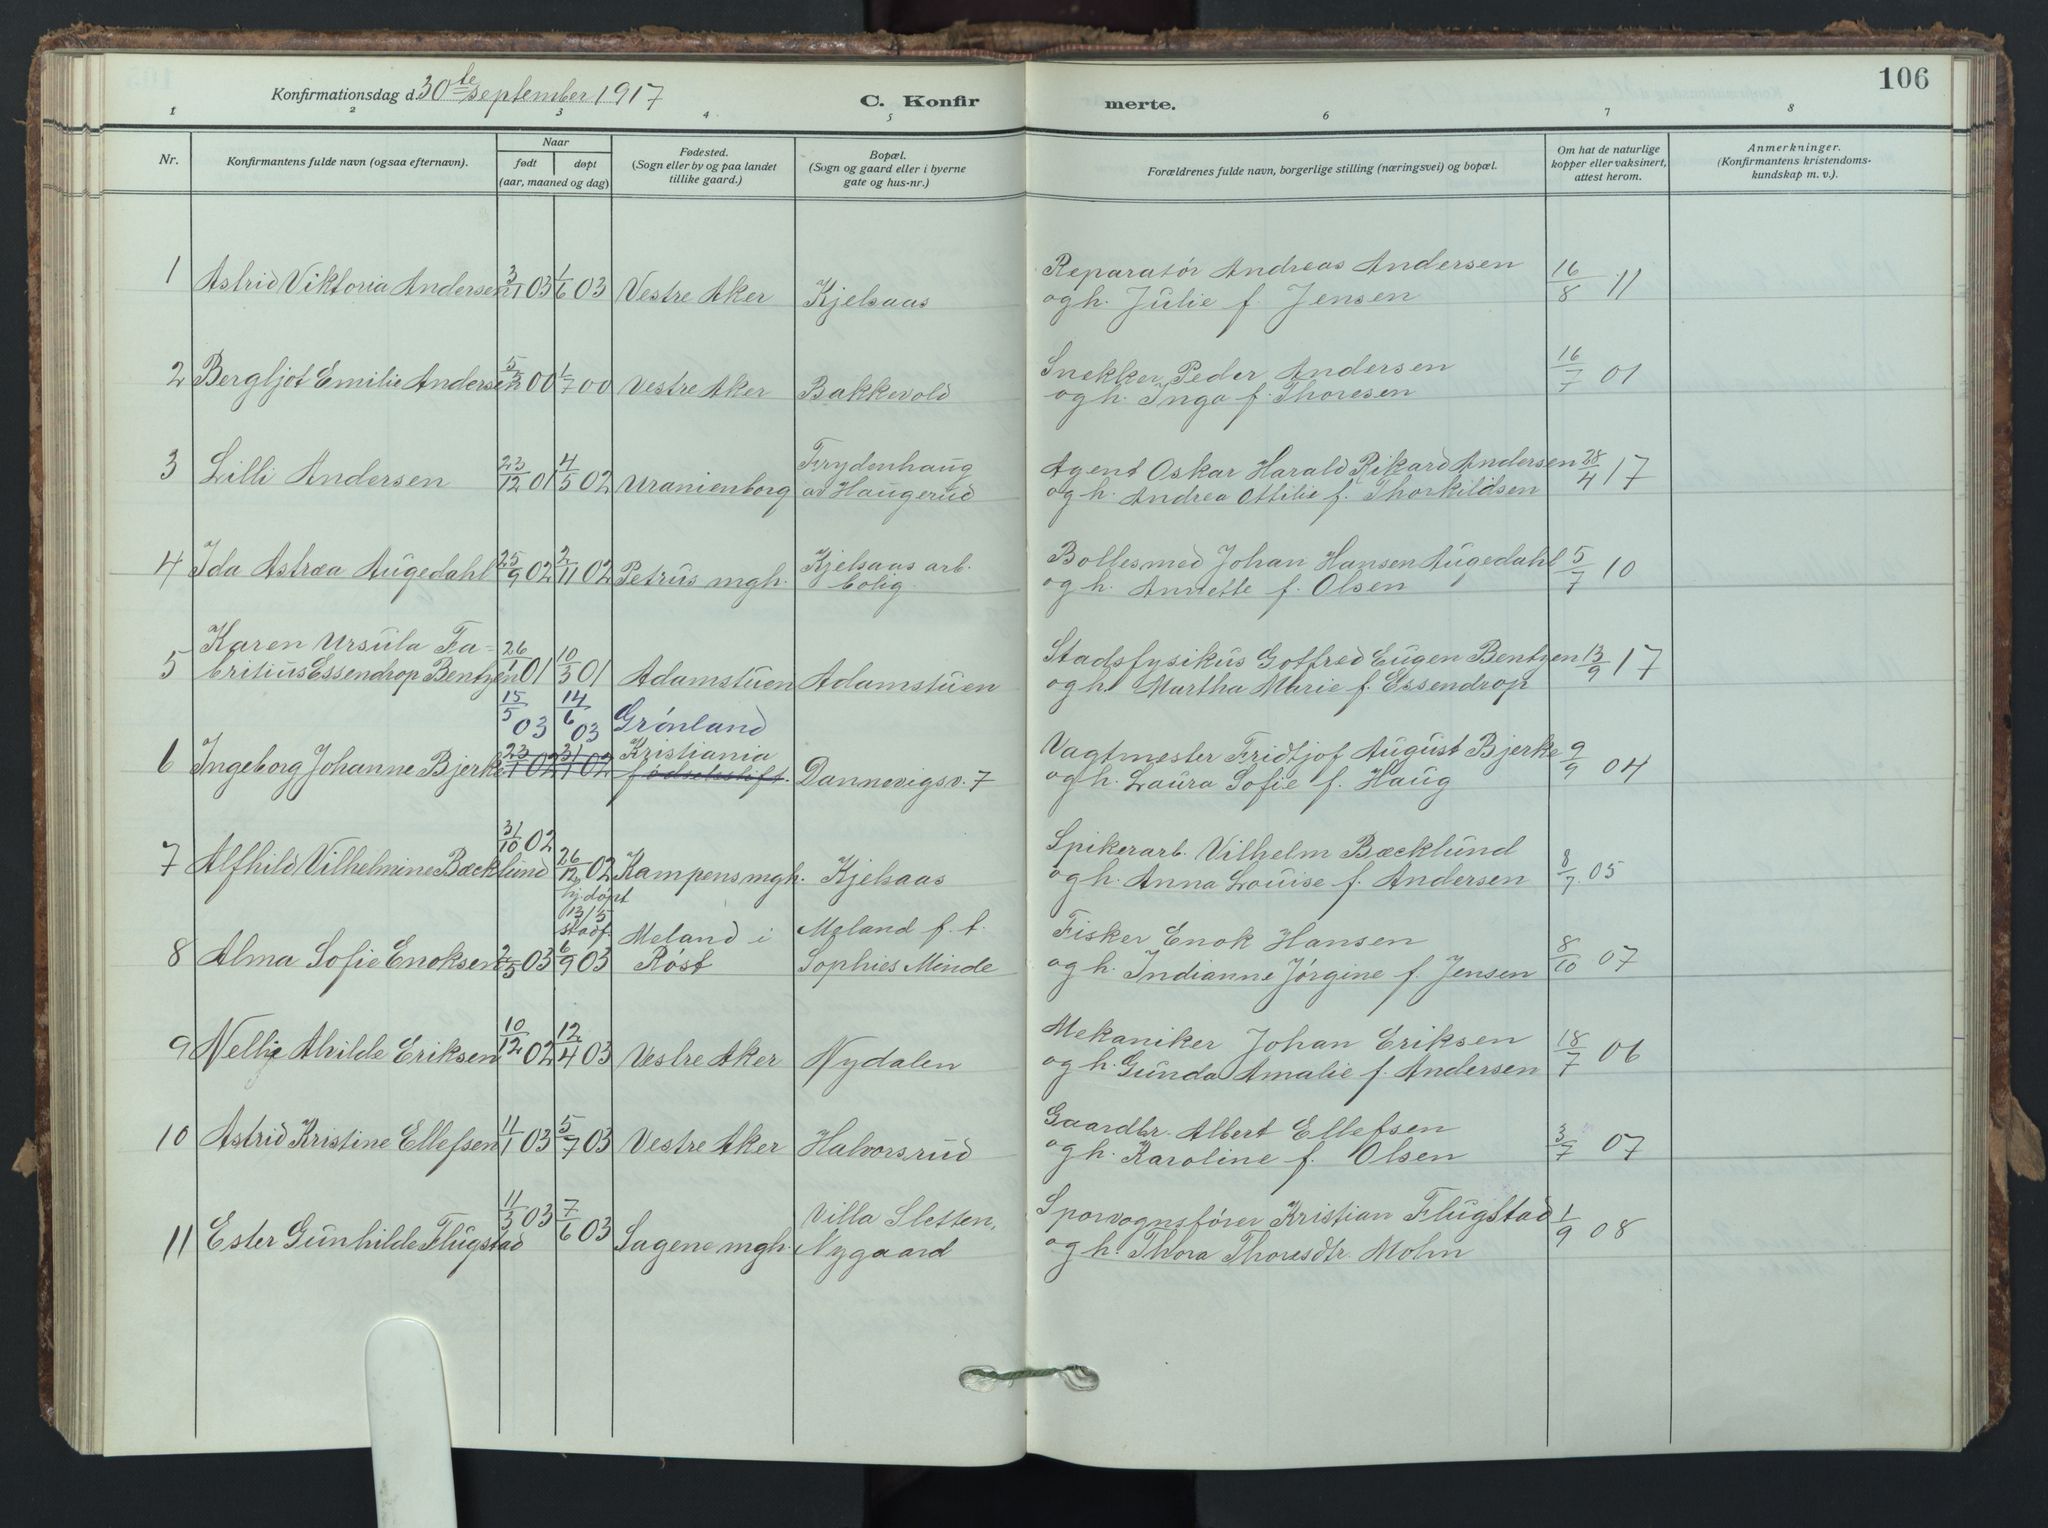 106
Konfirmationsdag d. 30te september 1917
C. Konfir merte.
1 2 3 4 5 6 7 8
Nr.
Konfirmantens fulde navn (ogsaa efternavn).
Naar
født døpt
(aar, maaned og dag)
Fødested.
(Sogn eller by og paa landet
tillike gaard.)
Bopæl.
(Sogn og gaard eller i byerne
gate og hus-nr.)
Forældrenes fulde navn, borgerlige stilling (næringsvei) og bopæl.
Om hat de naturlige
kopper eller vaksinert,
attest herom.
Anmerkninger.
(Konfirmantens kristendoms-
kundskap m. v.).
1 Astrid Viktoria Andersen 3/1 03 1/6 03 Vestre Aker Kjelsaas
Reparatør Andreas Andersen 16/8 11
og h. Julie f. Jensen
2 Bergljot Emilie Andersen 5/2 00 1/7 00 Vestre Aker Bakkevold
Snekker Peder Andersen 16/7 01
og h. Inga f. Thoresen
3 Lilli Andersen 23/12 01 4/5 02 Uranienborg Frydenhaug
av Haugerud
Agent Oskar Harald Rikard Andersen 28/4 17
og h. Andrea Ottilie f. Thorkildsen
4 Ida Astræa Augedahl 25/9 02 2/11 02 Petrus mgh. Kjelsaas arb.
bolig.
Boltesmed Johan Hansen Augedahl 5/7 10
og h. Annette f. Olsen
Karen Ursula Fa-
5 britius Essendrop Bentzen 26/1 01 10/3 01 Adamstuen Adamstuen
Stadsfysikus Gotfred Eugen Bentzen 13/9 17
og h. Martha Marie f. Essendrop
15/5 03 14/6 03 Grønland
6 Ingeborg Johanne Bjerke 23/1 02 31/1 02 Kristiania
fødselsstift. Dannevigsv. 7
Vagtmester Fridtjof August Bjerke 9/9 04
og h. Laura Sofie f. Haug
7 Alfhild Vilhelmine Bæcklund 31/10 02 26/12 02 Kampens mgh. Kjelsaas
Spikerarb. Vilhelm Bæcklund 8/7 05
og h. Anna Louise f. Andersen
hj. døpt
13/5
stadf.
8 Alma Sofie Enoksen 2/5 03 6/9 03 Meland i
Røst
Meland f. t.
Sophies Minde
Fisker Enok Hansen 8/10 07
og h. Indianne Jørgine f. Jensen
9 Nellie Alvilde Eriksen 10/12 02 12/4 03 Vestre Aker Nydalen
Mekaniker Johan Eriksen 18/7 06
og h. Gunda Amalie f. Andersen
10 Astrid Kristine Ellefsen 11/1 03 5/7 03 Vestre Aker Halvorsrud
Gaardbr. Albert Ellefsen 3/7 07
og h. Karoline f. Olsen
11 Ester Gunhilde Flugstad 11/3 03 7/6 03 Sagene mgh. Villa Sletten,
Nygaard
Sporvognsfører Kristian Flugstad 1/9 08
og h. Thora Thoresdtr. Mohn